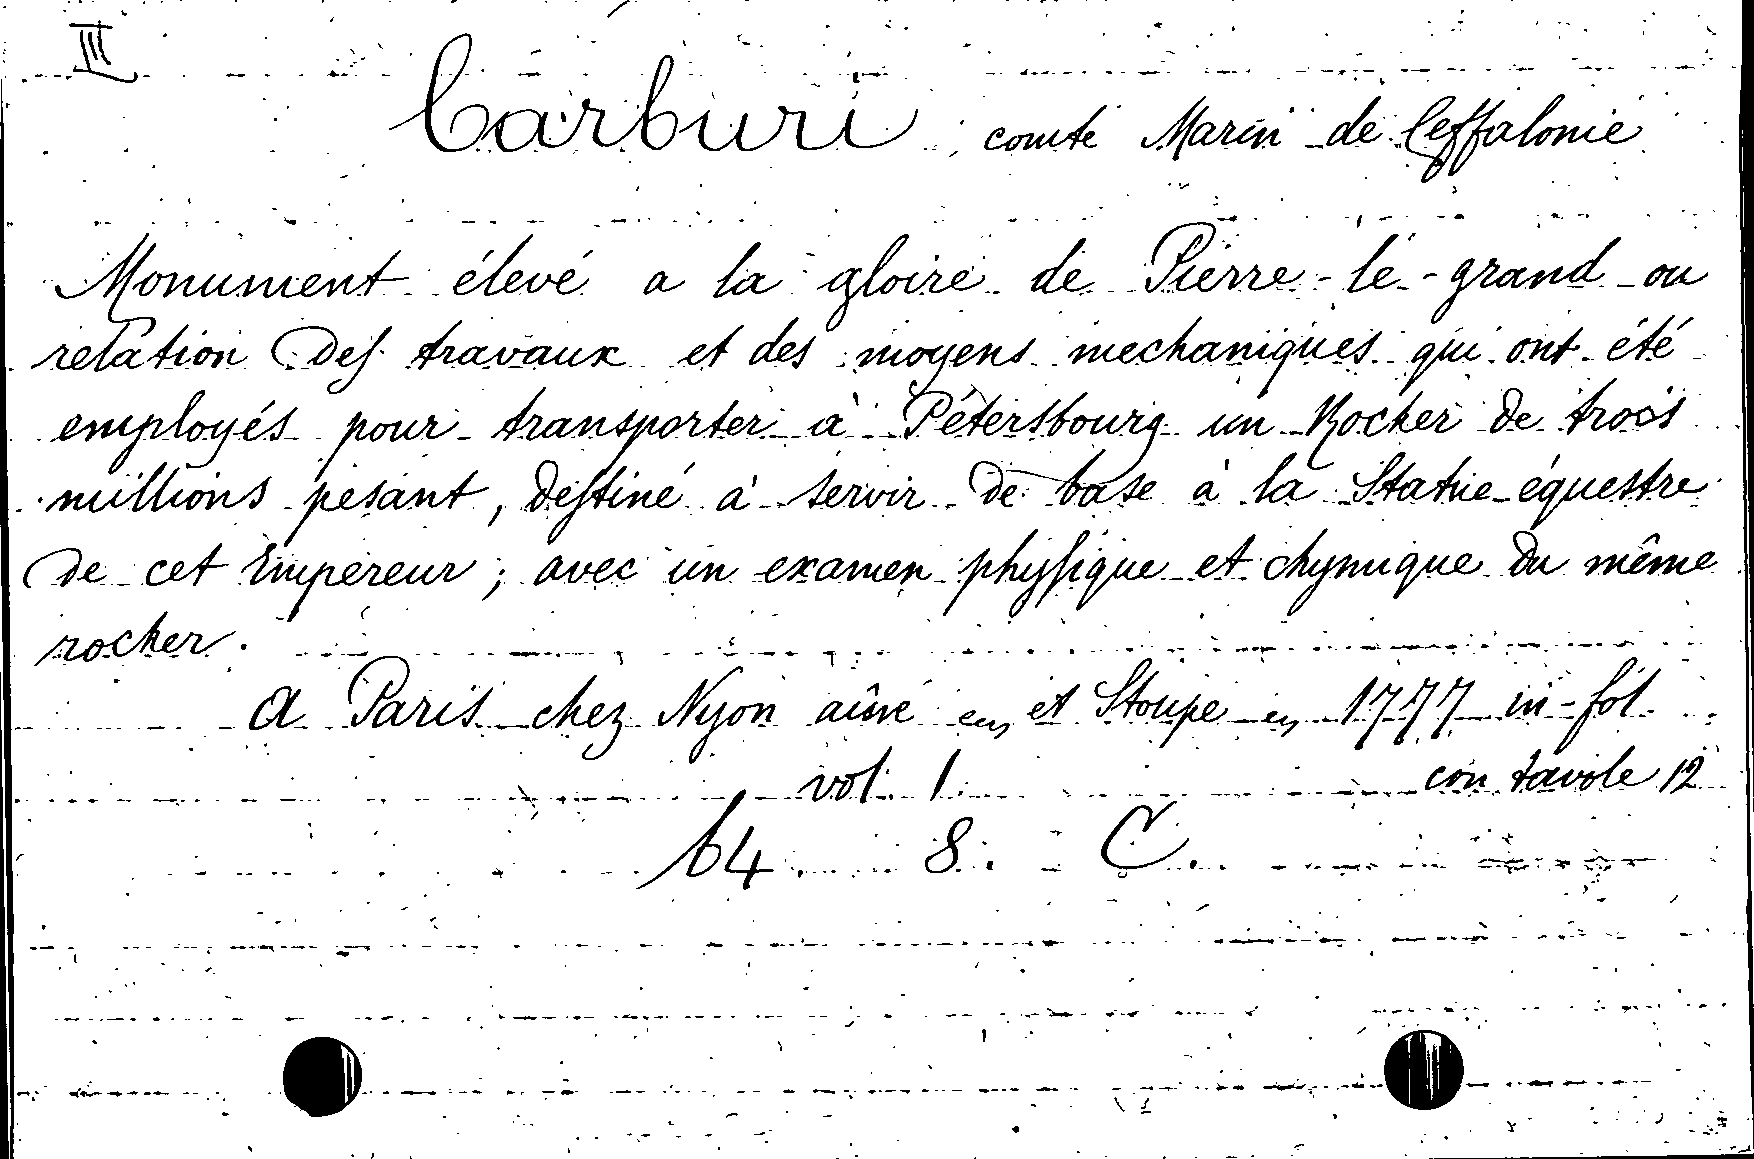 III
Carburi comte Marin de Ceffalonie
Monument élevé a la gloire de Pierre-le-grand ou
relation des travaux et des moyens mechaniques qui ont été
employés pour transporter à Pétersbourg un Rocher de trois
millions pesant, destiné à servir de base à la Statue équestre
de cet Empereur; avec un examen physique et chymique du même
rocher.
A Paris chez Nyon aîné et Stoupe 1777 in-fol.
vol. 1 con tavole 12
64 8. C.